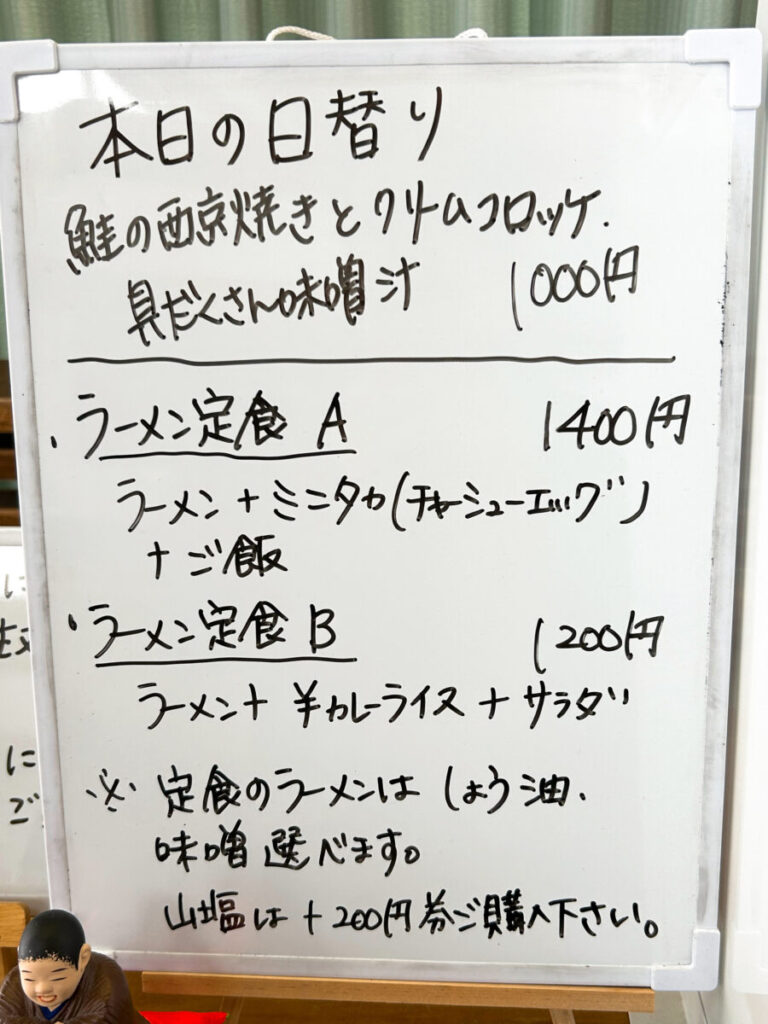 本日の日替り
鮭の西京焼きとクリームコロッケ.
具だくさん味噌汁 1000円
・ラーメン定食 A 1400円
ラーメン+ミニタカ(チャーシューエッグ)
+ご飯
・ラーメン定食 B 1200円
ラーメン+半カレーライス+サラダ
※ 定食のラーメンは しょう油、
味噌 選べます。
山塩は +200円券ご購入下さい。
に
に
ご